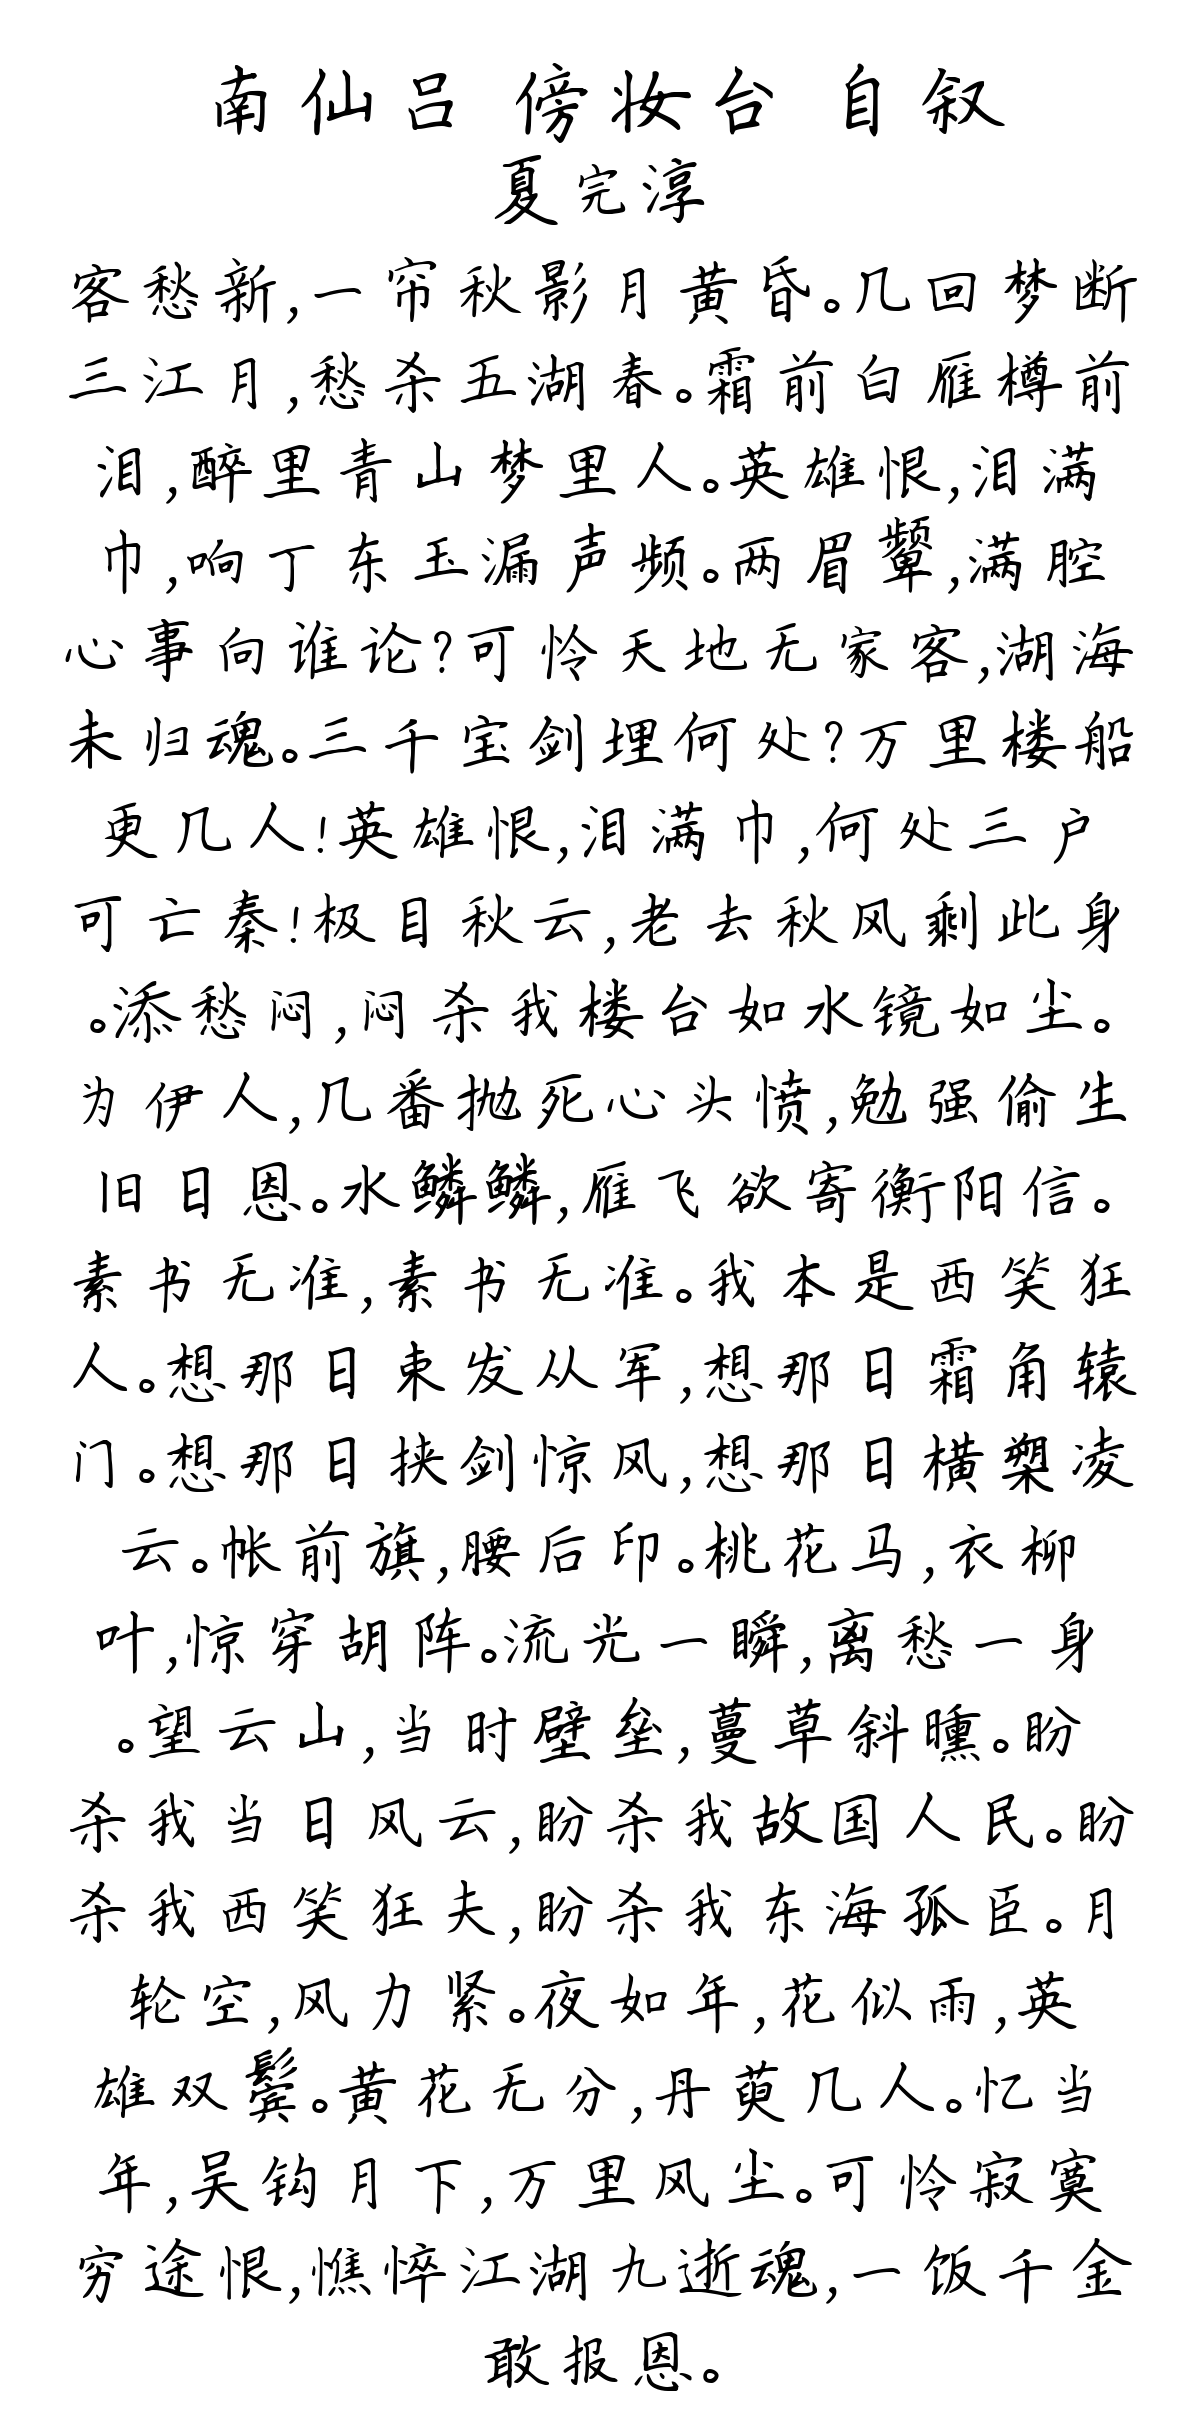 南仙吕 傍妆台 自叙
夏完淳
客愁新,一帘秋影月黄昏。几回梦断
三江月,愁杀五湖春。霜前白雁樽前
泪,醉里青山梦里人。英雄恨,泪满
巾,响丁东玉漏声频。两眉颦,满腔
心事向谁论?可怜天地无家客,湖海
未归魂。三千宝剑埋何处?万里楼船
更几人!英雄恨,泪满巾,何处三户
可亡秦!极目秋云,老去秋风剩此身
。添愁闷,闷杀我楼台如水镜如尘。
为伊人,几番抛死心头愤,勉强偷生
旧日恩。水鳞鳞,雁飞欲寄衡阳信。
素书无准,素书无准。我本是西笑狂
人。想那日束发从军,想那日霜角辕
门。想那日挟剑惊风,想那日横槊凌
云。帐前旗,腰后印。桃花马,衣柳
叶,惊穿胡阵。流光一瞬,离愁一身
。望云山,当时壁垒,蔓草斜曛。盼
杀我当日风云,盼杀我故国人民。盼
杀我西笑狂夫,盼杀我东海孤臣。月
轮空,风力紧。夜如年,花似雨,英
雄双鬓。黄花无分,丹萸几人。忆当
年,吴钩月下,万里风尘。可怜寂寞
穷途恨,憔悴江湖九逝魂,一饭千金
敢报恩。